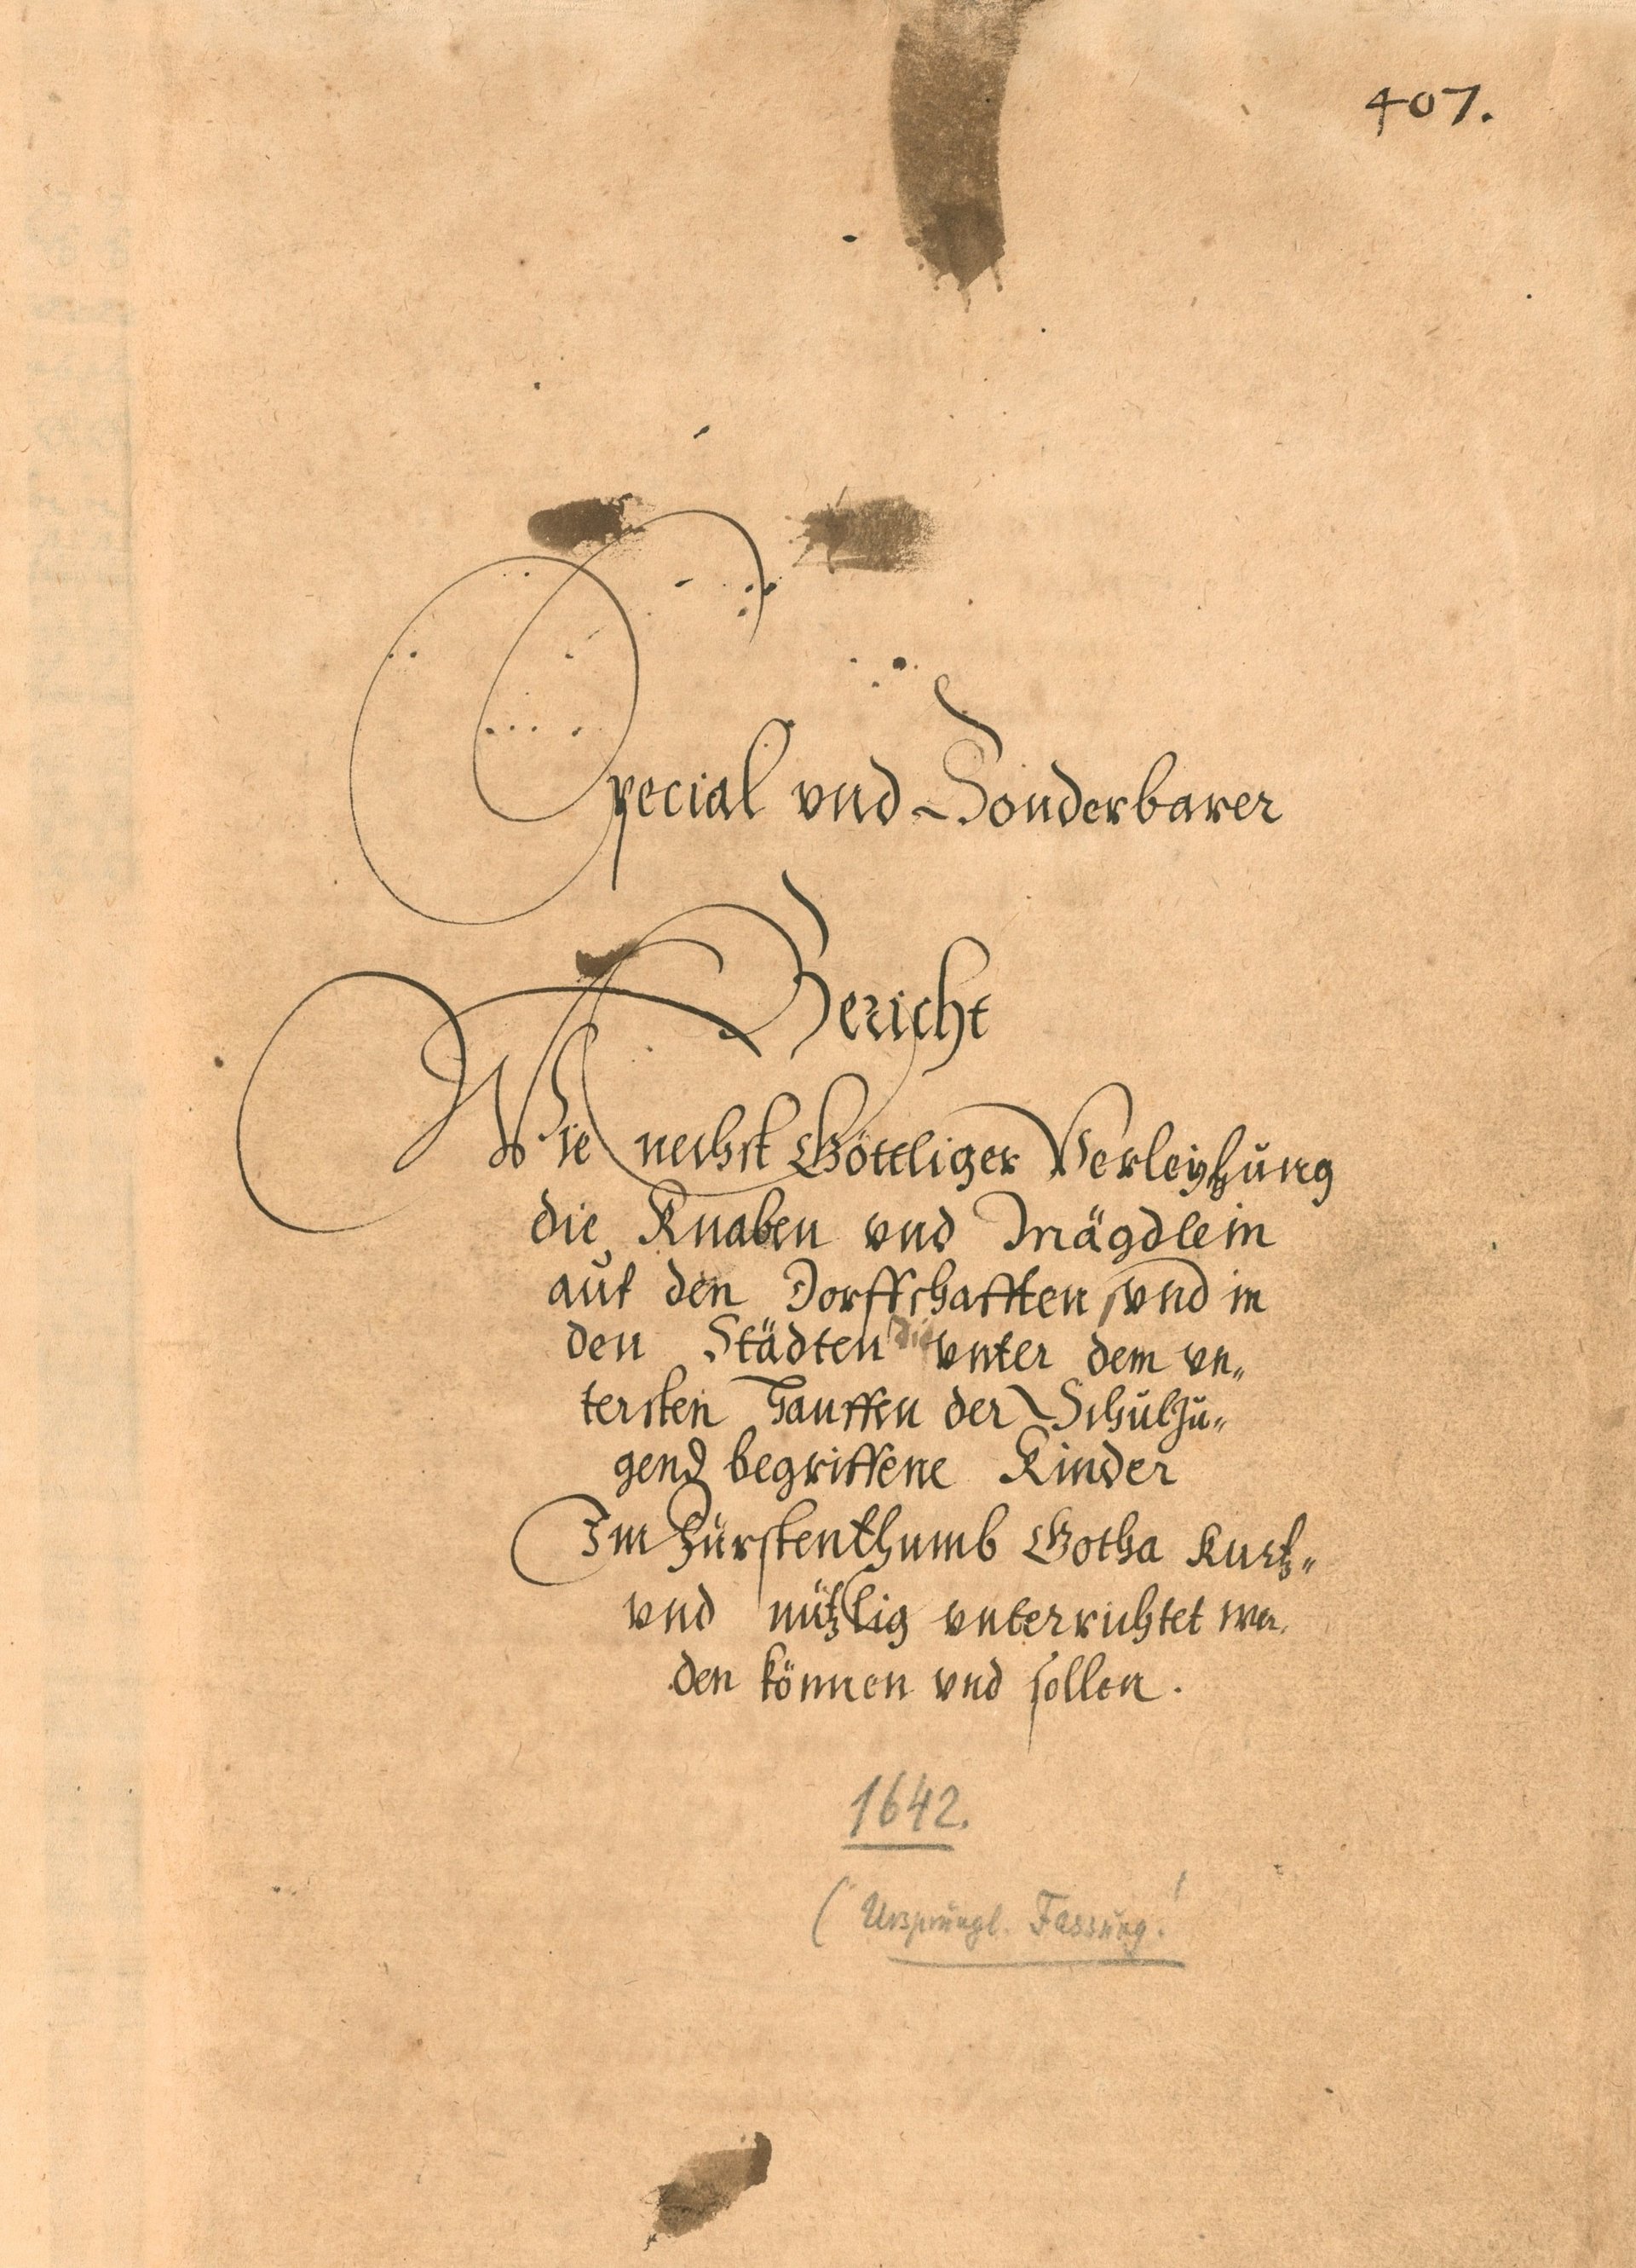 407.
Special vnd Sonderbarer
Bericht
Wie nechst Göttlicher Verleyhung
die Knaben vnd Mägdlein
auf den Dorffschafften vnd in
den Städten die vnter dem vn„
tersten Hauffen der Schulju„
gend begriffene Kinder
Im Fürstenthumb Gotha Kurtz„
vnd nützlich vnterrichtet wer„
den können vnd sollen.
1642.
(Ursprüngl. Fassung!